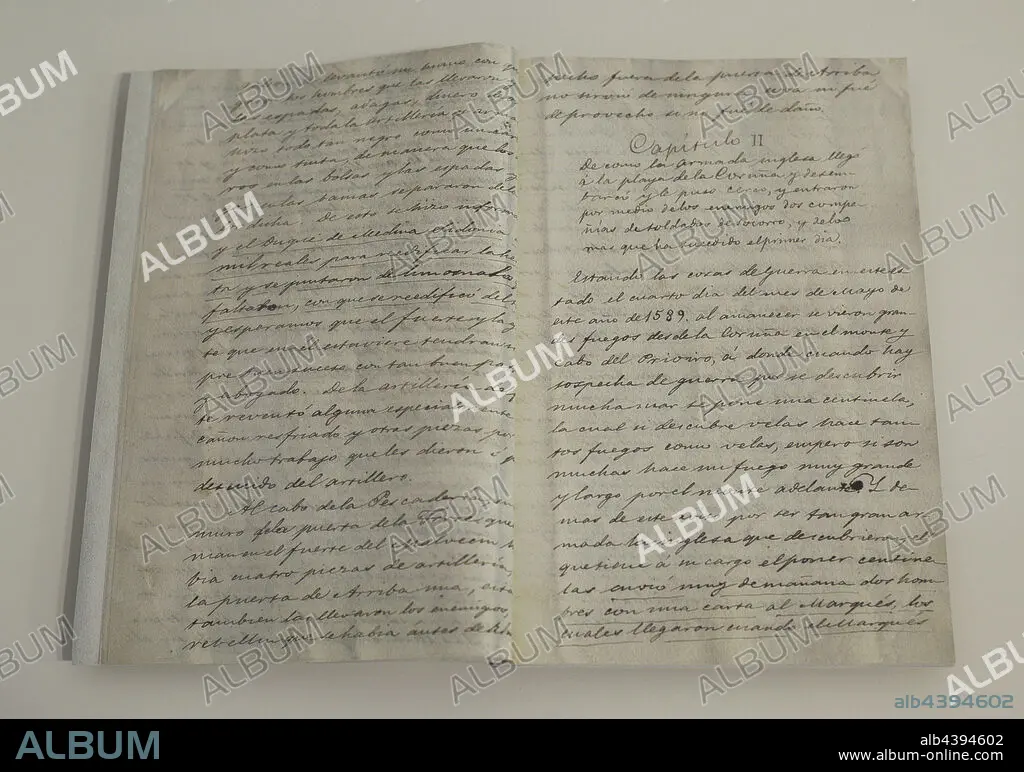 levantó un trueno, con
los hombres que las llevaron
las espadas, dagas, dinero de
plata y toda la artillería
hizo todo tan negro como un
y como tinta, de manera que los
en las bolsas y las espadas
tamas repararon del
dicha. De esto se hizo inform
y el Duque de Medina Sidonia
mil reales para reedificar la
ta y se juntaron de limosna
faltaron, con que se reedificó del
y esperamos que el fuerte y la
te que en él estuviere tendrán
pre buen suceso con tan buen
y abogado. De la artillería
te reventó alguna especialmente
cañon resfriado y otras piezas por
mucho trabajo que les dieron ó p
descuido del artillero.
Al cabo de la Pescadería
muro de la puerta de la Torre que
man en el fuerte del Malvecín
bia cuatro piezas de artillería,
la puerta de Arriba una,
tambien la llevaron los enemigos,
rebellin que le habia antes de
hecho fuera de la puerta de Arriba
no sirvió de ninguna cosa ni fué
de provecho si no fué de daño.
Capítulo II
De como la armada inglesa llegó
á la playa de la Coruña y desem-
barcó y le puso cerco, y entraron
por medio de los enemigos dos compa-
ñias de soldados de socorro, y de lo
mas que ha sucedido el primer dia.
Estando las cosas de guerra en este es-
tado el cuarto dia del mes de Mayo de
este año de 1589, al amanecer se vieron gran-
des fuegos desde la Coruña en el monte y
cabo del Prioiro, a donde cuando hay
sospecha de guerra pues se descubrir
mucha mar se pone una centinela,
la cual si descubre velas hace tan-
tos fuegos como velas, empero si son
muchas hace un fuego muy grande
y largo por el monte adelante. Y de-
mas de este por ser tan gran ar-
mada la inglesa que descubrieron, el
que tiene á su cargo el poner centine-
las envió muy de mañana dos hom-
bres con una carta al Marqués, los
cuales llegaron cuando el Marqués
ALBUM
alb4394602
ALBUM
alb4394602
www.album-online.com